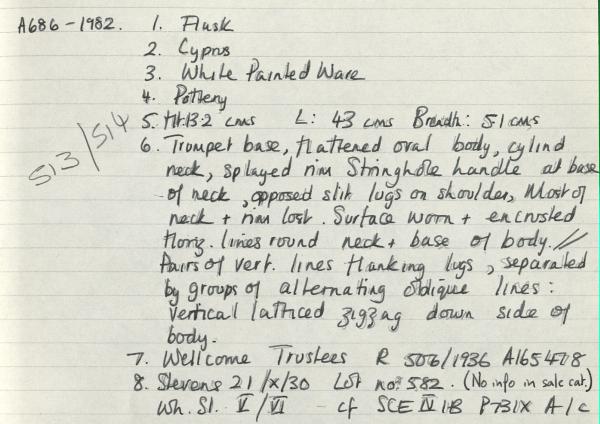 A686-1982. 1. Flask
2. Cyprus
3. White Painted Ware
4. Pottery
513/514
5. Ht:13.2 cms L: 43 cms Breadth: 5.1 cms
6. Trumpet base, flattened oval body, cylind
neck, splayed rim Stringhole handle at base
of neck, opposed slit lugs on shoulder, Most of
neck + rim lost. Surface worn + encrusted
Horiz. lines round neck + base of body. //
Pairs of vert. lines flanking lugs, separated
by groups of alternating oblique lines:
vertical latticed zigzag down side of
body.
7. Wellcome Trustees R 5076/1936 A165478
8. Stevens 21/X/30 Lot no: 582. (No info in sale cat.)
Wh. Sl. V/VI - cf SCE IV 1:B P731X A/c